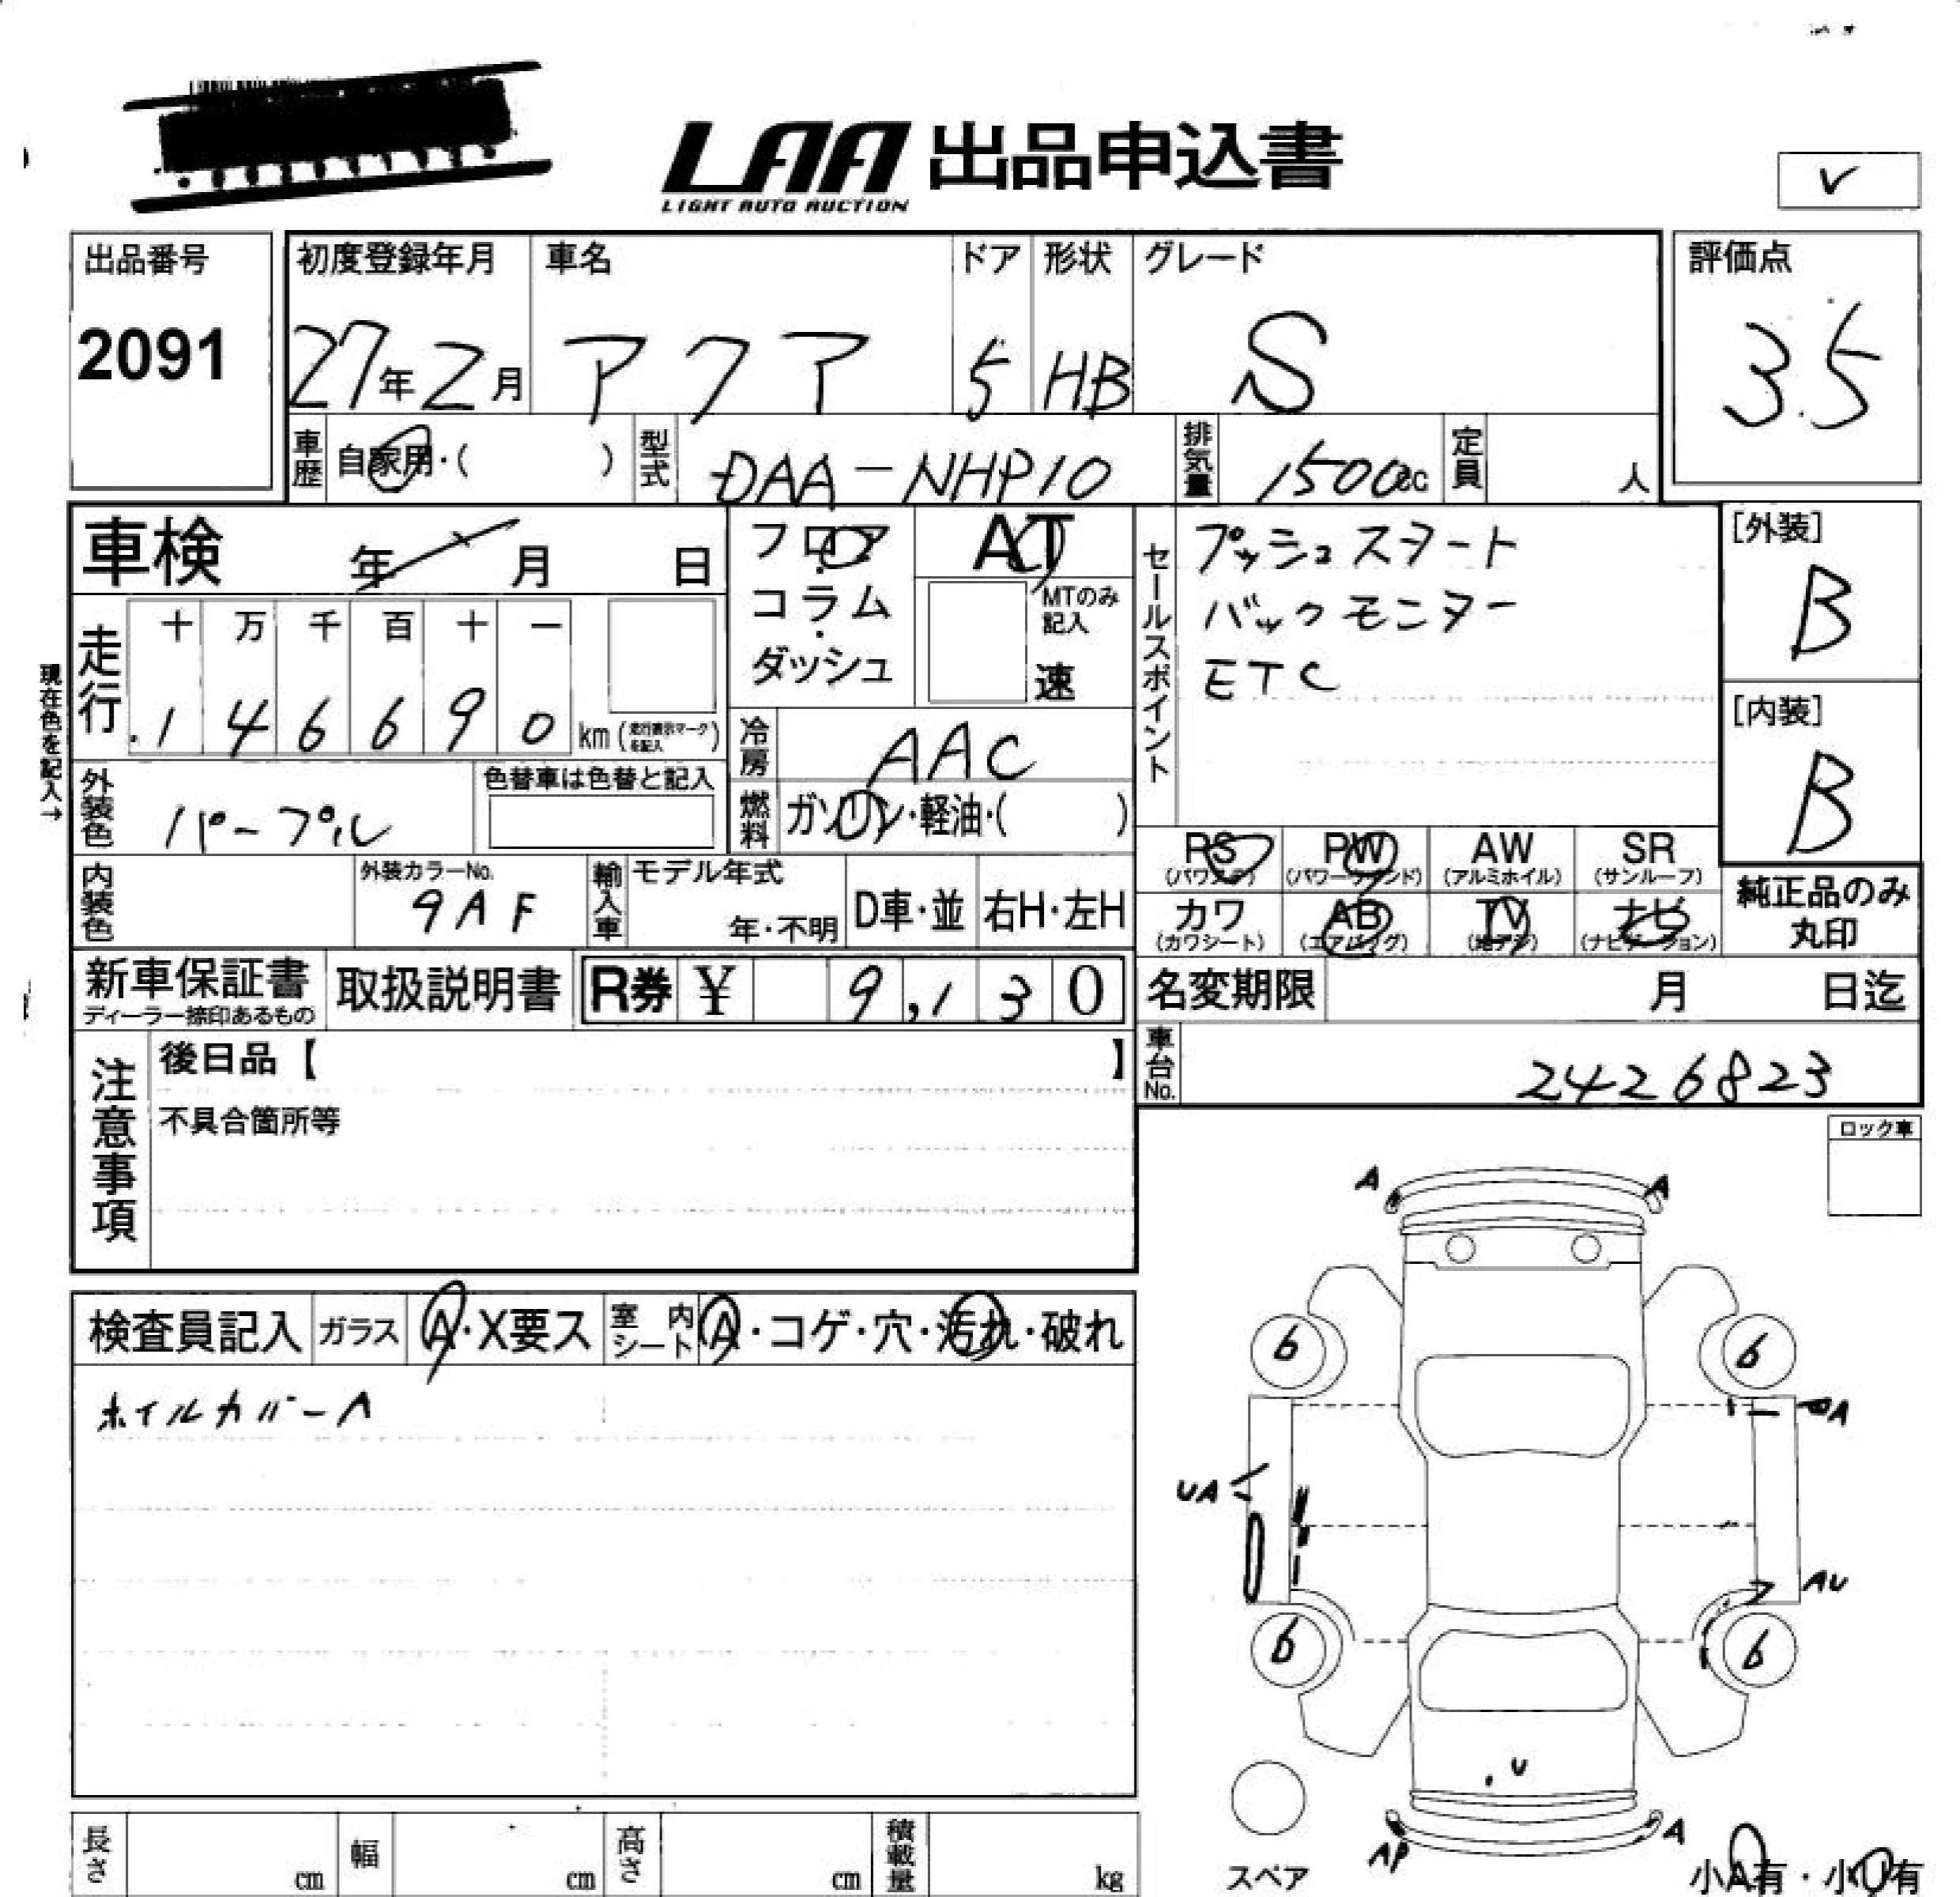 LAA 出品申込書
LIGHT AUTO AUCTION
✓
出品番号
2091
初度登録年月
27年2月
車名
アクア
ドア
5
形状
HB
グレード
S
評価点
3.5
車歴
自家用・( )
型式
DAA-NHP10
排気量
1500cc
定員
人
車検 年 月 日
フロア・コラム・ダッシュ
AT
MTのみ記入
速
セールスポイント
プッシュスタート
バックモニター
ETC
[外装]
B
[内装]
B
現在色を記入→
走行
十 万 千 百 十 一
1 4 6 6 9 0 km(走行表示マークを記入)
冷房
AAC
外装色
パープル
色替車は色替と記入
燃料
ガソリン・軽油・( )
PS (パワステ)
PW (パワーウインド)
AW (アルミホイル)
SR (サンルーフ)
カワ (カワシート)
AB (エアバッグ)
TV (地デジ)
ナビ (ナビゲーション)
純正品のみ丸印
内装色
外装カラーNo.
9AF
輸入車
モデル年式
年・不明
D車・並
右H・左H
新車保証書
ディーラー捺印あるもの
取扱説明書
R券 ¥ 9,130
名変期限 月 日迄
車台No.
2426823
注意事項
後日品【 】
不具合箇所等
ロック車
検査員記入
ガラス
A・X要ス
室内シート
A・コゲ・穴・汚れ・破れ
ホイルカバーA
A
A
6
6
A
UA
AU
6
6
U
AP
A
スペア
小A有・小U有
長さ cm
幅 cm
高さ cm
積載量 kg